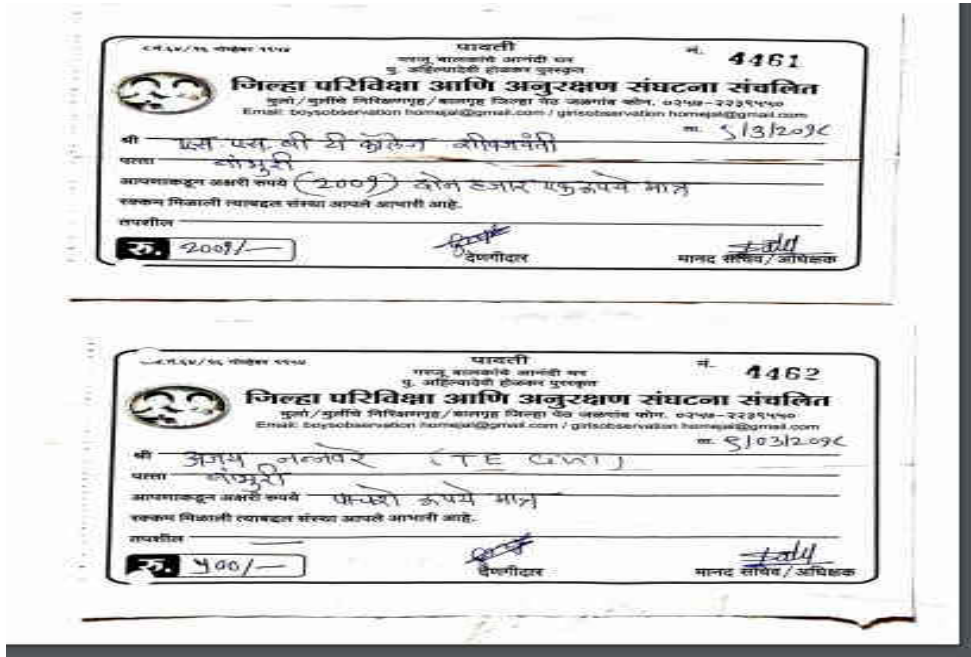 पावती
नं. 4461
गरजू बालकांचे आनंदी घर
पु. अहिल्यादेवी होळकर पुरस्कृत
जिल्हा परिविक्षा आणि अनुरक्षण संघटना संचलित
मुलां/मुलींचे निरिक्षणगृह/बालगृह जिल्हा पेठ जळगांव फोन. ०२५७-२२३९५५०
Email: boysobservation homejal@gmail.com / girlsobservation homejal@gmail.com
ता. ९/3/209८
श्री एस. एस. बी टी कॉलेज
पत्ता बांभुरी
आपणाकडून अक्षरी रुपये (200९) दोन हजार एक रुपये मात्र
रक्कम मिळाली त्याबद्दल संस्था आपले आभारी आहे.
तपशील
रु. 200९/-
देणगीदार मानद सचिव/अधिक्षक
पावती
नं. 4462
गरजू बालकांचे आनंदी घर
पु. अहिल्यादेवी होळकर पुरस्कृत
जिल्हा परिविक्षा आणि अनुरक्षण संघटना संचलित
मुलां/मुलींचे निरिक्षणगृह/बालगृह जिल्हा पेठ जळगांव फोन. ०२५७-२२३९५५०
Email: boysobservation homejal@gmail.com / girlsobservation homejal@gmail.com
ता. ९/03/209८
श्री अजय नन्नवरे (TE Civil)
पत्ता बांभुरी
आपणाकडून अक्षरी रुपये पाचशे रुपये मात्र
रक्कम मिळाली त्याबद्दल संस्था आपले आभारी आहे.
तपशील
रु. ५00/-
देणगीदार मानद सचिव/अधिक्षक